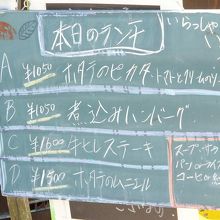 本日のランチ
いらっしゃい
A ¥1050 ホタテのピカタ トマトとクリームのソ
B ¥1050 煮込みハンバーグ
C ¥1600 牛ヒレステーキ
D ¥1500 ホタテのムニエル
スープ・サラ
パン or ライス
コーヒー or 紅